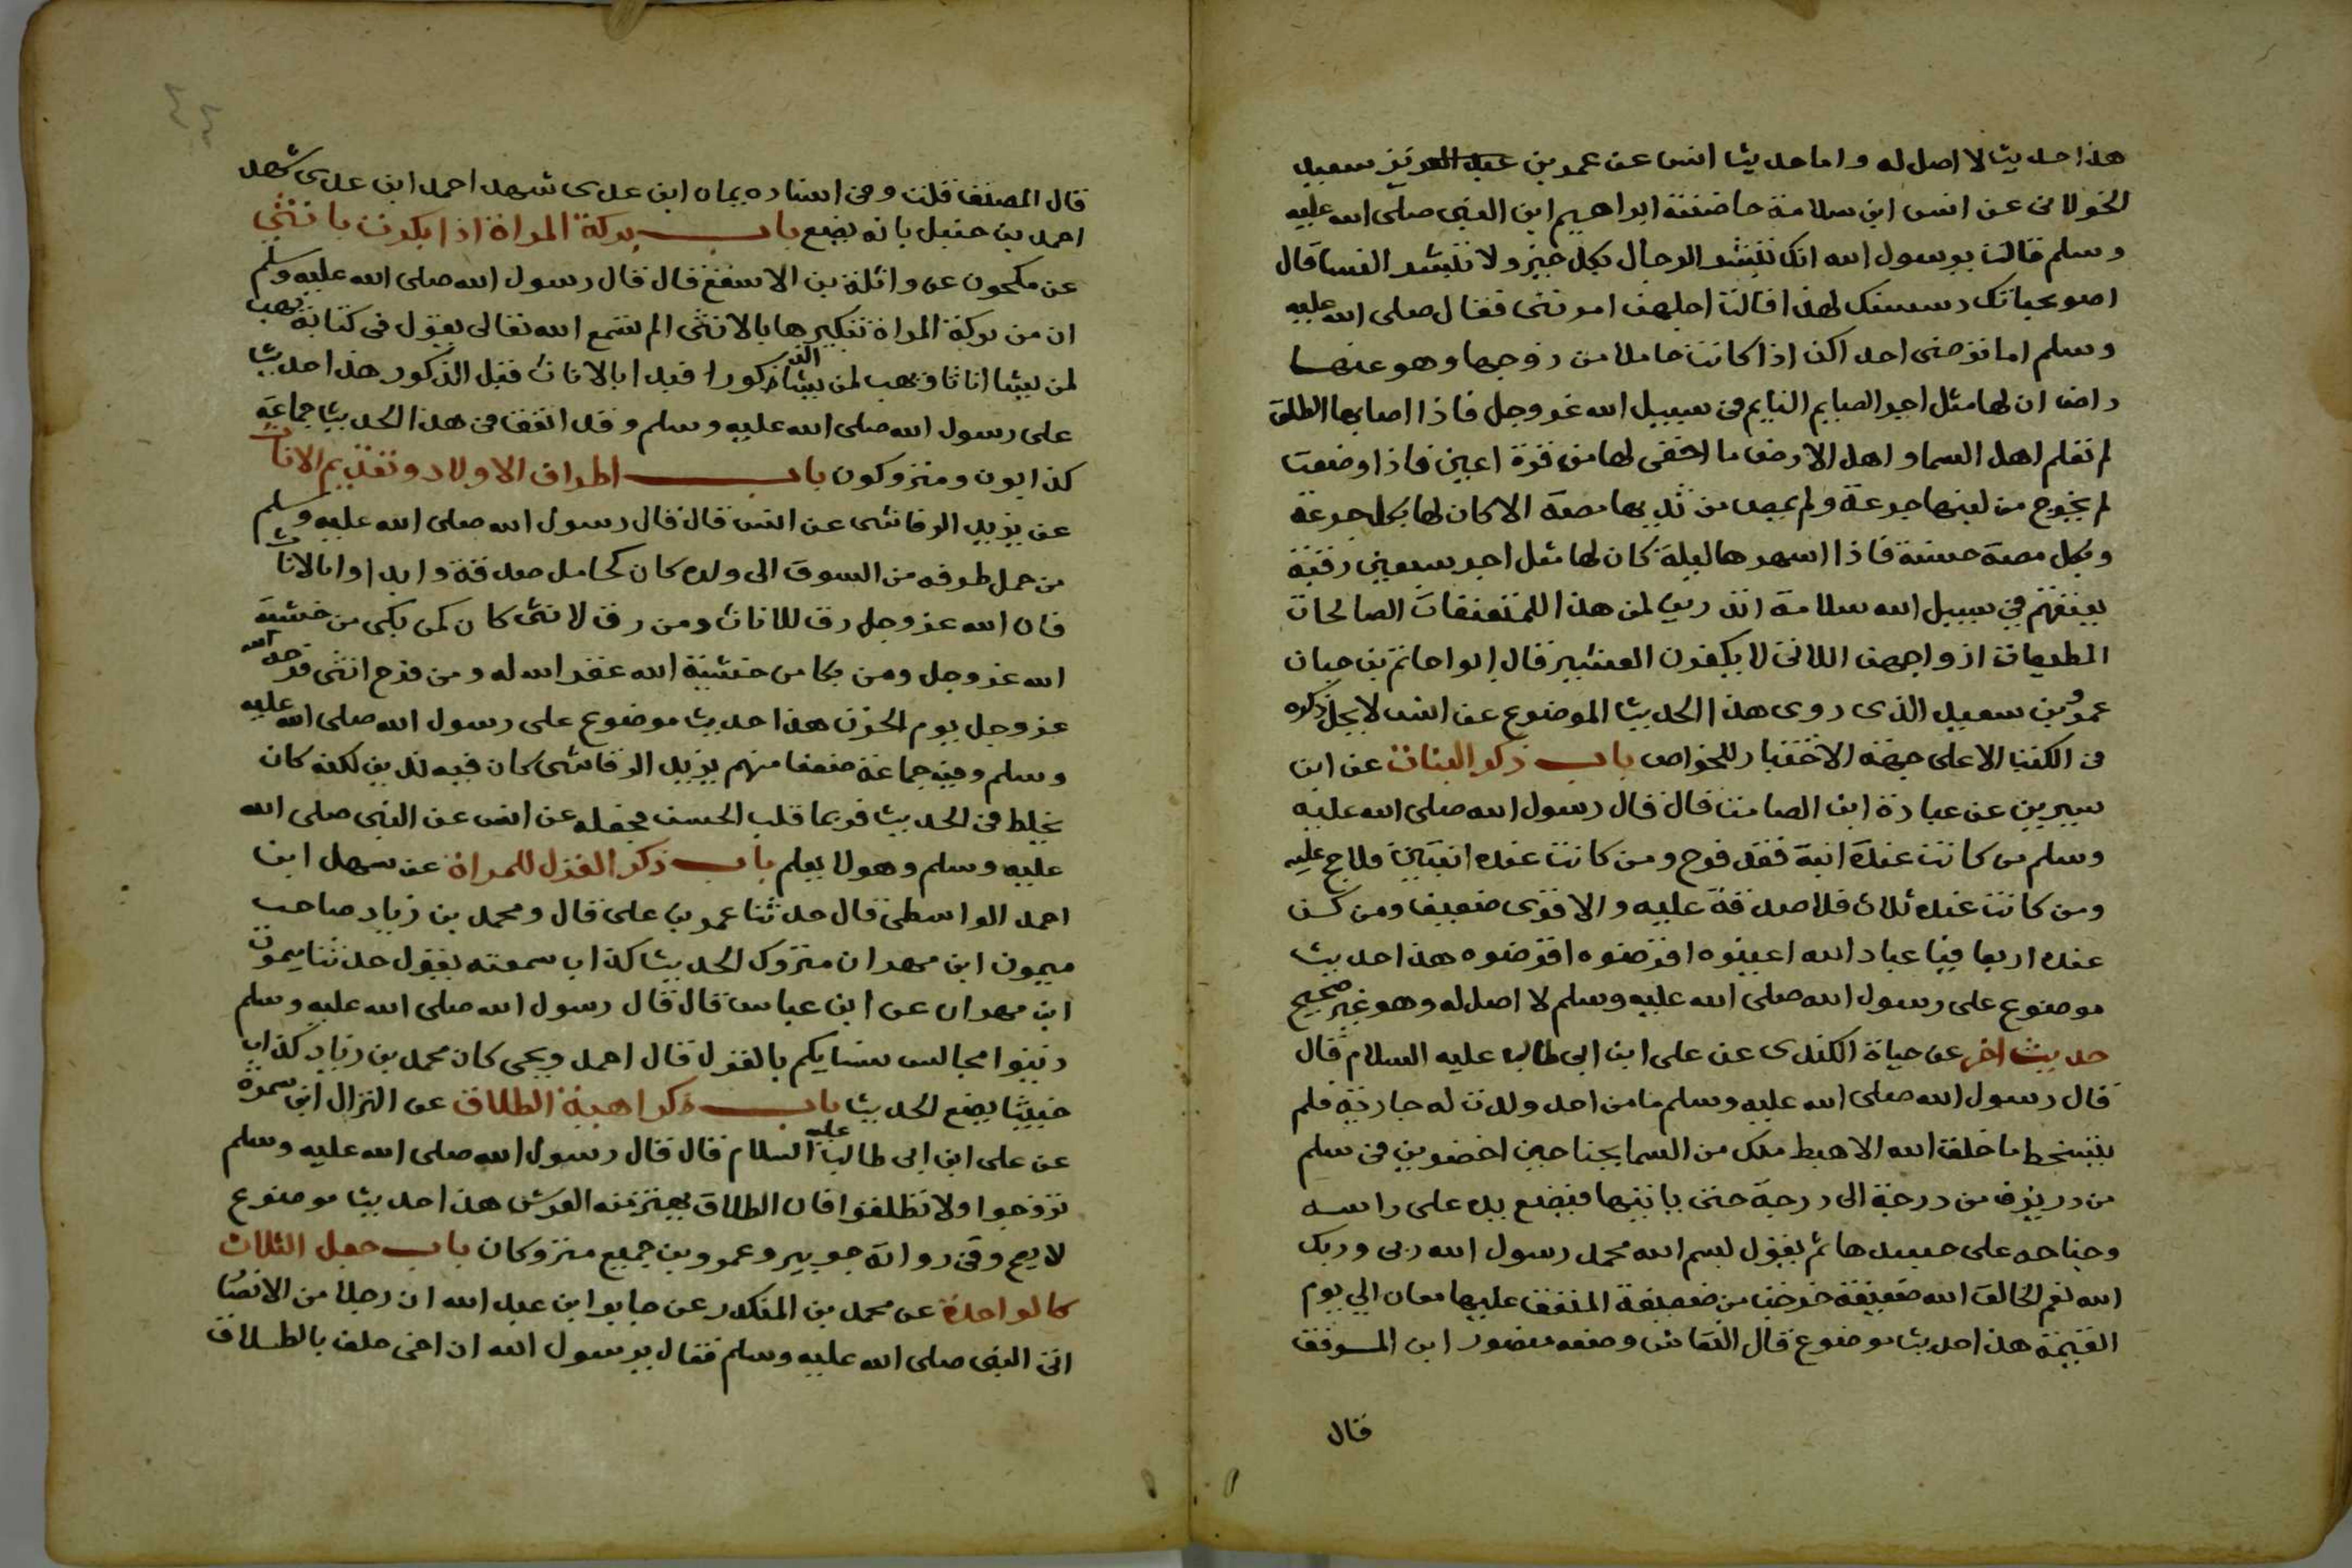 هذا حديث لا اصل له واما حديث انس عن عمرو بن سعيد
الخولانى عن انس ابن سلامة حاضنة ابراهيم ابن النبى صلى الله عليه
وسلم قالت يرسول الله انك تبشر الرجال بكل خير ولا تبشر النسا قال
اصويحباتك دسسنك لهذا قالت اجل هن امرتنى فقال صلى الله عليه
وسلم اما ترضى احداكن اذا كانت حاملا من زوجها وهو عنها
راض ان لها مثل اجر الصايم النايم فى سبيل الله عز وجل فاذا اصابها الطلق
لم تعلم اهل السما واهل الارض ما اخفى لها من قرة اعين فاذا وضعت
لم يخرج من لبنها جرعة ولم يمص من ثديها مصة الا كان لها بكل جرعة
وبكل مصة حسنة فاذا اسهرها ليلة كان لها مثل اجر سبعين رقبة
يعتقهم فى سبيل الله سلامة اتدرين لمن هذا للمتعففات الصالحات
المطيعات ازواجهن اللاتى لا يكفرن العشير قال ابوا حاتم بن حبان
عمرو بن سعيد الذى روى هذا الحديث الموضوع عن انس لا يحل ذكره
فى الكتب الا على جهة الاختبار للخواص باب ذكر البنات عن ابن
سيرين عن عبادة ابن الصامت قال قال رسول الله صلى الله عليه
وسلم من كانت عنده ابنة فقد فرح ومن كانت عنده ابنتين فلا حج عليه
ومن كانت عنده ثلاث فلا صدقة عليه والا قرى ضعيف ومن كن
عنده اربعا فيا عباد الله اعينوه اقرضوه اقرضوه هذا حديث
موضوع على رسول الله صلى الله عليه وسلم لا اصل له وهو غير صحيح
حديث اخر عن حياة الكندى عن على ابن ابى طالب عليه السلام قال
قال رسول الله صلى الله عليه وسلم ما من احد ولدت له جارية فلم
يتسخط ما خلق الله الا هبط ملك من السما بجناحين اخضرين فى سلم
من در يزف من درجة الى درجة حتى ياتيها فيضع يده على راسه
وجناحه على جسدها ثم يقول بسم الله محمد رسول الله ربى وربك
الله نعم الخالق الله ضعيفة خرجت من ضعيفة المنفق عليها معان الى يوم
القيمة هذا حديث موضوع قال النقاش وضعه منصور ابن الموفق
قال
قال المصنف قلت وفى اسناده يمان ابن عدى شهد احمد ابن عدى شهد
احمد بن حنبل بانه يضع باب بركة المراة اذا بكرت بانثى
عن مكحون عن واثلة بن الاسقع قال قال رسول الله صلى الله عليه وسلم
ان من بركة المراة تبكيرها بالانثى الم تسمع الله تعالى يقول فى كتابه يهب
لمن يشا اناثا ويهب لمن يشا الذكورا فبدا بالاناث قبل الذكور هذا حديث
على رسول الله صلى الله عليه وسلم وقد اتفق فى هذا الحديث جماعة
كذابون ومتروكون باب اطراف الاولاد وتقديم الاناث
عن يزيد الرقاشى عن انس قال قال رسول الله صلى الله عليه وسلم
من حمل طرفه من السوق الى ولده كان كحامل صدقة وابداوا بالاناث
فان الله عز وجل رق للاناث ومن رق لانثى كان كمن بكى من خشية
الله عز وجل ومن بكا من خشية الله غفر الله له ومن فرح انثى فرحه الله
عز وجل يوم الحزن هذا حديث موضوع على رسول الله صلى الله عليه
وسلم وفيه جماعة ضعفا منهم يزيد الرقاشى كان فيه تدين لكنه كان
يخلط فى الحديث فربما قلب الحسن فجعله عن انس عن النبى صلى الله
عليه وسلم وهو لا يعلم باب ذكر الغزل للمراة عن سهل ابن
احمد الواسطى قال حدثنا عمر بن على قال ومحمد بن زياد صاحب
ميمون ابن مهران متروك الحديث كذاب سمعته يقول حدثنا ميمون
ابن مهران عن ابن عباس قال قال رسول الله صلى الله عليه وسلم
زينوا مجالس نسايكم بالغزل قال احمد ويحى كان محمد بن زياد كذاب
خبيثا يضع الحديث باب كراهية الطلاق عن النزال ابن سمرة
عن على ابن ابى طالب عليه السلام قال قال رسول الله صلى الله عليه وسلم
تزوجوا ولا تطلقوا فان الطلاق يهتز منه العرش هذا حديث موضوع
لا يصح وفى رواته جويبر وعمرو بن جميع متروكان باب جعل الثلاث
كالواحدة عن محمد بن المنكدر عن جابر ابن عبد الله ان رجلا من الانصا
اتى النبى صلى الله عليه وسلم فقال يرسول الله ان اخى حلف بالطلاق